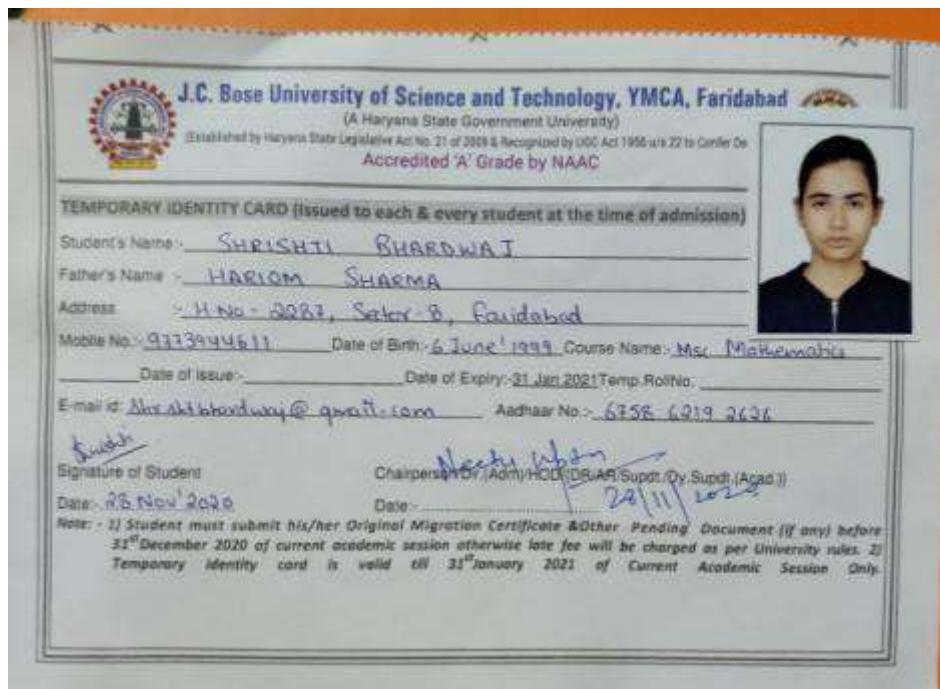 J.C. Bose University of Science and Technology, YMCA, Faridabad
(A Haryana State Government University)
(Established by Haryana State Legislative Act No. 21 of 2009 & Recognized by UGC Act 1956 u/s 22 to Confer De
Accredited 'A' Grade by NAAC
TEMPORARY IDENTITY CARD (Issued to each & every student at the time of admission)
Student's Name:- SHRISHTI BHARDWAJ
Father's Name :- HARIOM SHARMA
Address :- H.No - 2287, Sector-8, Faridabad
Mobile No.:- 9773944611 Date of Birth:- 6 June' 1999 Course Name:- Msc Mathematics
Date of Issue:- Date of Expiry:-31 Jan 2021 Temp.RollNo.
E-mail id: @gmail.com Aadhaar No.:- 6758 6219 2626
Signature of Student Chairperson/Dir.(Adm)/HOD/DR/AR/Supdt./Dy.Supdt.(Acad.))
Date:- 28 Nov' 2020 Date:- 28/11/2020
Note: - 1) Student must submit his/her Original Migration Certificate &Other Pending Document (if any) before
31st December 2020 of current academic session otherwise late fee will be charged as per University rules. 2)
Temporary identity card is valid till 31st January 2021 of Current Academic Session Only.